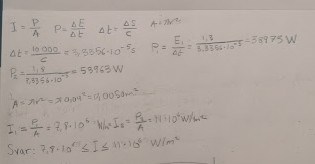 I = P/A  P = ΔE/Δt  Δt = Δl/c
Δt = 10 000/c = 3,3356·10⁻⁵ s  P₁ = E₁/Δt = 1,3/3,3356·10⁻⁵ = 38973 W
P₂ = 1,8/3,3356·10⁻⁵ = 53963 W
A = πr² = π0,04² = 0,0050m²
I₁ = P₁/A = 7,8·10⁶ W/m² I₂ = P₂/A = 11·10⁶ W/m²
Svar: 7,8·10⁶ ≤ I ≤ 11·10⁶ W/m²